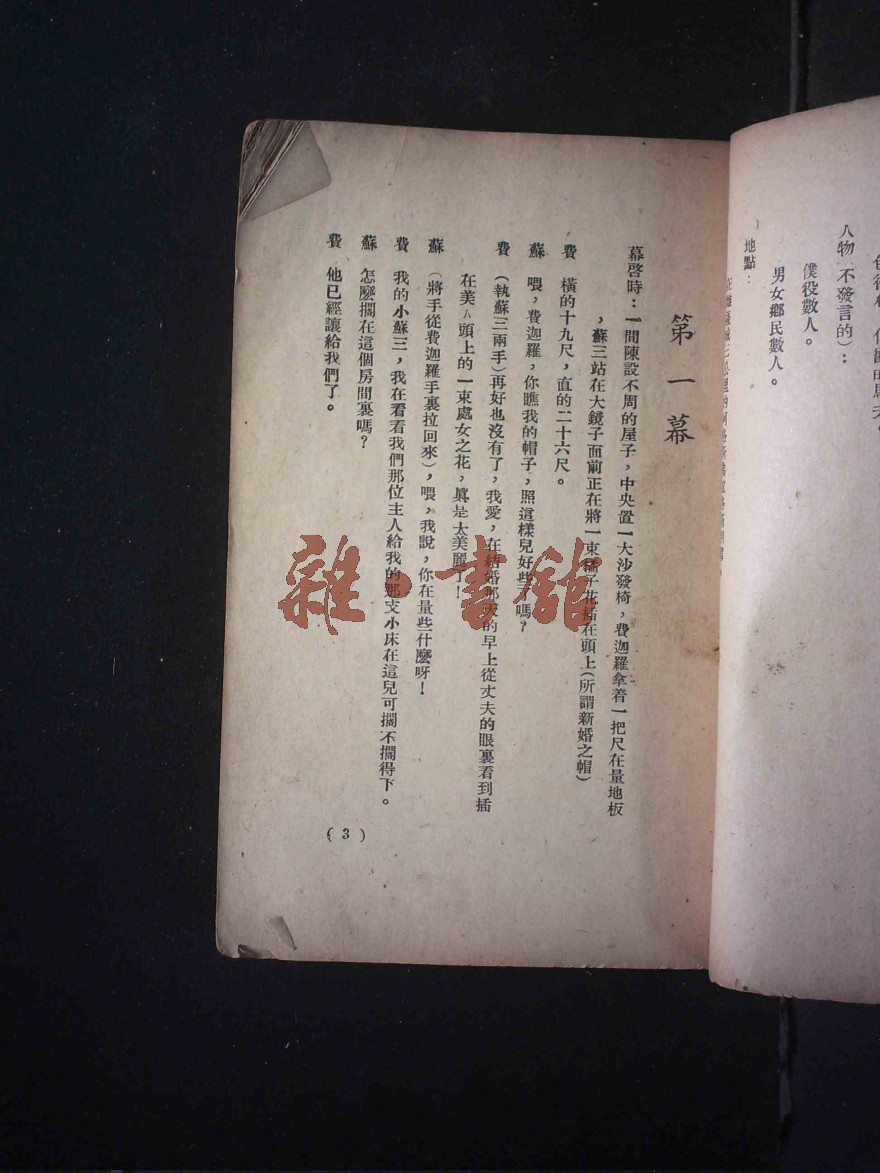 人物 不發言的)：
僕役數人。
男女鄉民數人。
地點：
第一幕
幕啓時：一間陳設不周的屋子，中央置一大沙發椅，費迦羅拿着一把尺在量地板
，蘇三站在大鏡子面前正在將一束橘子花插在頭上(所謂新婚之帽)
費 橫的十九尺，直的二十六尺。
蘇 喂，費迦羅，你瞧我的帽子，照這樣兒好些了嗎？
費 (執蘇三兩手)再好也沒有了，我愛，在結婚那天的早上從丈夫的眼裏看到插
在美人頭上的一束處女之花，眞是太美麗了！
蘇 (將手從費迦羅手裏拉回來)，喂，我說，你在量些什麼呀！
費 我的小蘇三，我在看看我們那位主人給我的那支小床在這兒可擱不擱得下。
蘇 怎麼擱在這個房間裏嗎？
費 他已經讓給我們了。
(3)
雜·書館